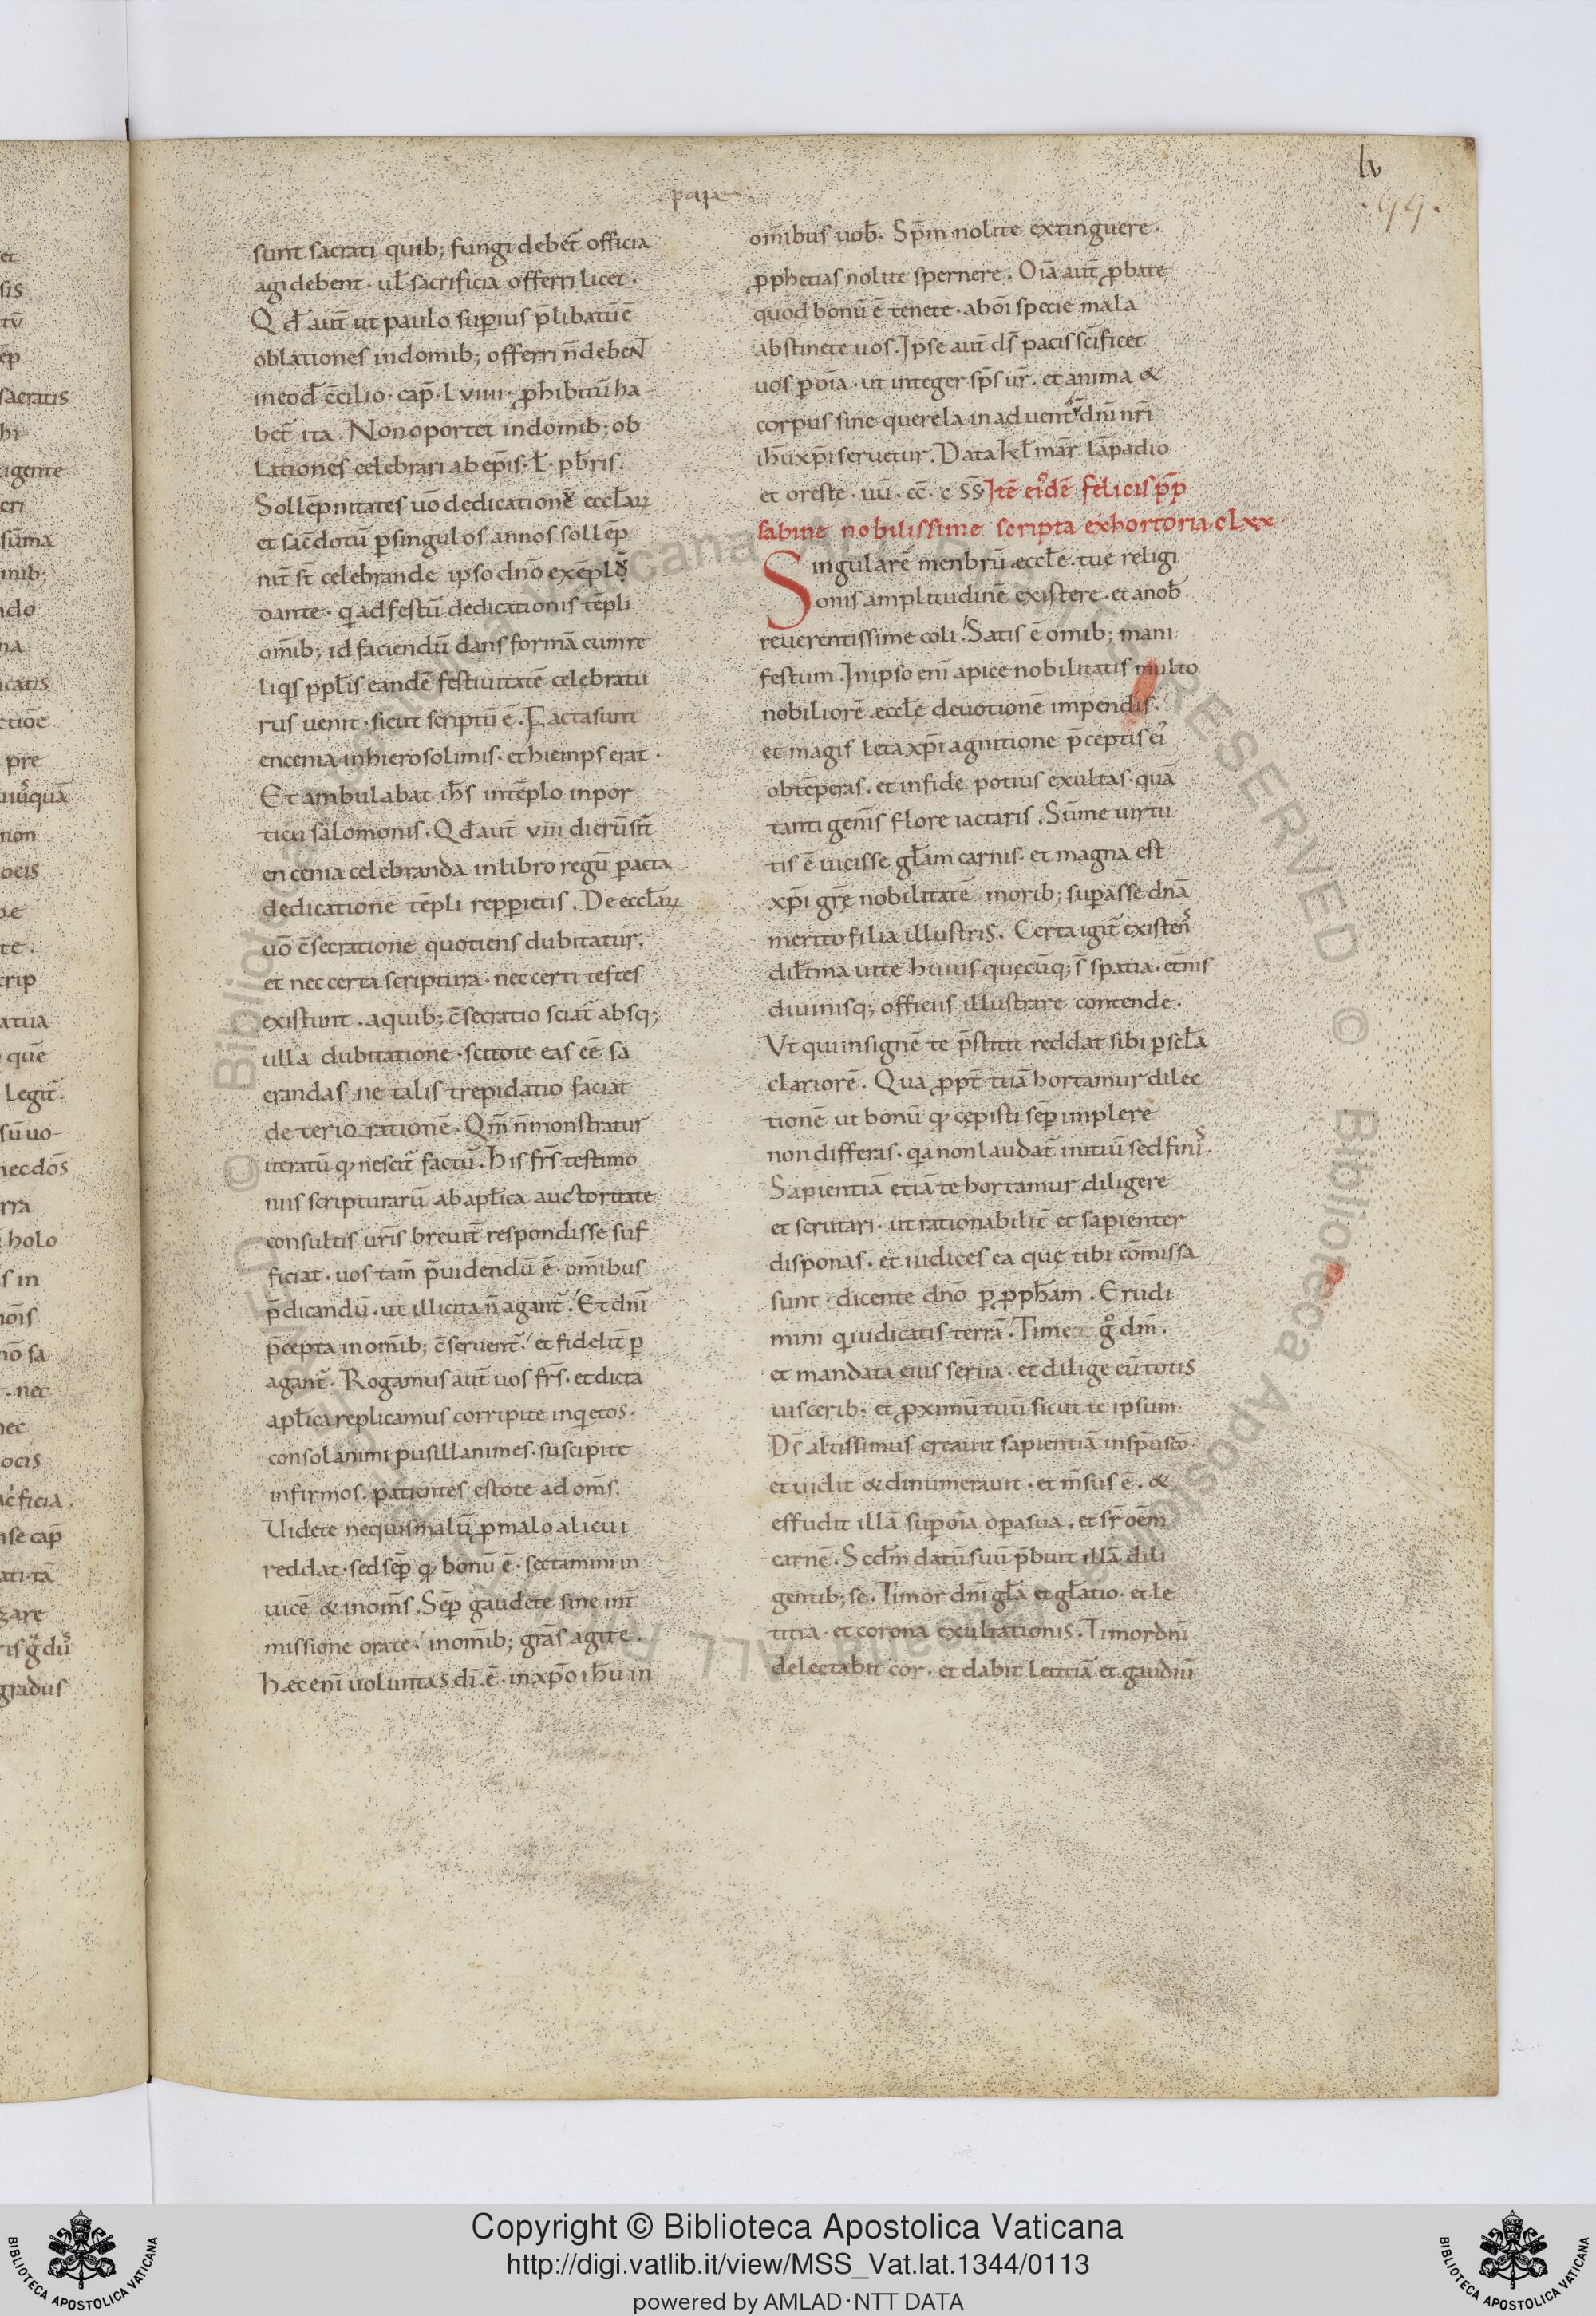 lv
.99.
sunt sacrati quib; fungi debet̄ officia
agi debent · ul̄ sacrificia offerri licet .
Qd̄ aut̄ ut paulo sup̲ius p̄libatū ē
oblationes in domib; offerri n̄ debeNT
in eod̄ c̄cilio · cap̄ · Lviiii · p̲hibitū ha
bet̄ ita . Non oportet in domib; ob
lationes celebrari ab ep̄is · l̄ · pb̄ris .
Sollēpnitates uō dedicationū eccl̄aꝝ
et sac̄dotū p̲ singulos annos sollēp
nit̄ st̄ celebrande ipso dn̄o exēplū
dante · q̲ ad festū dedicationis tēpli
om̄ib; id faciendū dans formā cum re
liq̲s ppl̄is eandē festiuitatē celebratu
rus uenit · sicut scriptū ē . Facta sunt
encenia in hierosolimis · et hiemps erat ·
Et ambulabat ih̄s in tēplo in por
ticu salomonis . Qd̄ aut̄ viii dierū sīt
encenia celebranda in libro regū p̲acta
dedicatione tēpli repp̲ietis . De eccl̄aꝝ
uō c̄secratione quotiens dubitatur .
et nec certa scriptura · nec certi testes
existunt . a quib; c̄secratio sciat̄ absq;
ulla dubitatione · scitote eas eē sa
crandas ne talis trepidatio faciat
deteriorationē . Qm̄ n̄ monstratur
iteratū qd̲ nescit̄ factū . His fr̄s testimo
niis scripturarū ab apl̄ica auctoritate
consultis ur̄is breuit̄ respondisse suf
ficiat · uos tam̄ p̄uidendū ē · om̄ibus
p̄dicandū · ut illicita n̄ agant̄ . Et dn̄i
p̄cepta in om̄ib; c̄seruent̄ . et fidelit̄ p̲
agant̄ . Rogamus aut̄ uos fr̄s · et dicta
apl̄ica replicamus corripite inq̲etos ·
consolamini pusillanimes · suscipite
infirmos . patientes estote ad om̄s .
Uidete ne quis malū p̲ malo alicui
reddat · sed sēp̲ qd̲ bonū ē · sectamini in
uicē & in om̄s . Sēp̲ gaudete sine int̄
missione orate . in om̄ib; grās agite .
Hæc eni̅ uoluntas dī ē · in xp̄o ih̄u in
om̄ibus uob̄ . Sp̄m nolite extinguere ·
p̲phetias nolite spernere . Oīa aut̄ p̲bate
quod bonū ē tenete · ab oī specie mala
abstinete uos . Ipse aut̄ ds̄ pacis scīficet
uos p̲ oīa · ut integer sp̄s ur̄ . et anima &
corpus sine querela in aduentu dn̄i nr̄i
ih̄u xp̄i seruetur . Data kl̄ mar̄ lāpadio
et oreste · uū · cc̄ · c ss̄ Itē eiꝰdē felicis p̄p
sabine nobilissime scripta exhortoria · clxx ·
Singularē menbrū æccl̄e · tuę religi
onis amplitudinē existere · et a nob̄
reuerentissime coli . Satis ē omib; mani
festum . In ipso eni̅ apice nobilitatis multo
nobiliorē æccl̄ę deuotionē impendis .
et magis leta xp̄i agnitione p̄ceptis eiꝰ
obtēperas . et in fide potius exultas · quā
tanti gen̄is flore iactaris . Sūme uirtu
tis ē uicisse gl̄am carnis . et magna est
xp̄i grę nobilitatē morib; sup̲asse dn̄ā
merito filia illustris . Certa igit̄ existens
dil̄tma uite huius quecūq; s̄ spatia . et̄nis
diuinisq; officiis illustrare contende ·
Vt qui insignē te p̄stitit reddat sibi p̲ scl̄a
clariorē . Qua p̲pt̄ tuā hortamur dilec
tionē ut bonū qd̲ cępisti sēp̲ implere
non differas · q̲a non laudat̄ initiū sed finis .
Sapientiā etiā te hortamur diligere
et scrutari · ut rationabilit̄ et sapienter
disponas . et iudices ea quę tibi cōmissa
sunt · dicente dn̄o p̲ p̲ph̄am . Erudi
mini q̲ iudicatis terrā . Time g̊ dm̄ .
et mandata eius serua . et dilige eū totis
uiscerib · et p̲ximū tuū sicut te ipsum ·
Ds̄ altissimus creauit sapientiā in sp̄u scō ·
et uidit & dinumerauit . et m̄sus ē . &
effudit illā sup̲ oīa op̲a sua . et sr̄ oēm
carnē . Scd̄m datū suū p̄buit illā dili
gentib; se . Timor dn̄i gl̄a et gl̄atio · et le
titia · et corona exultationis . Timor dn̄i
delectabit cor . et dabit letitiā et gaudiū
Copyright © Biblioteca Apostolica Vaticana
http://digi.vatlib.it/view/MSS_Vat.lat.1344/0113
powered by AMLAD·NTT DATA